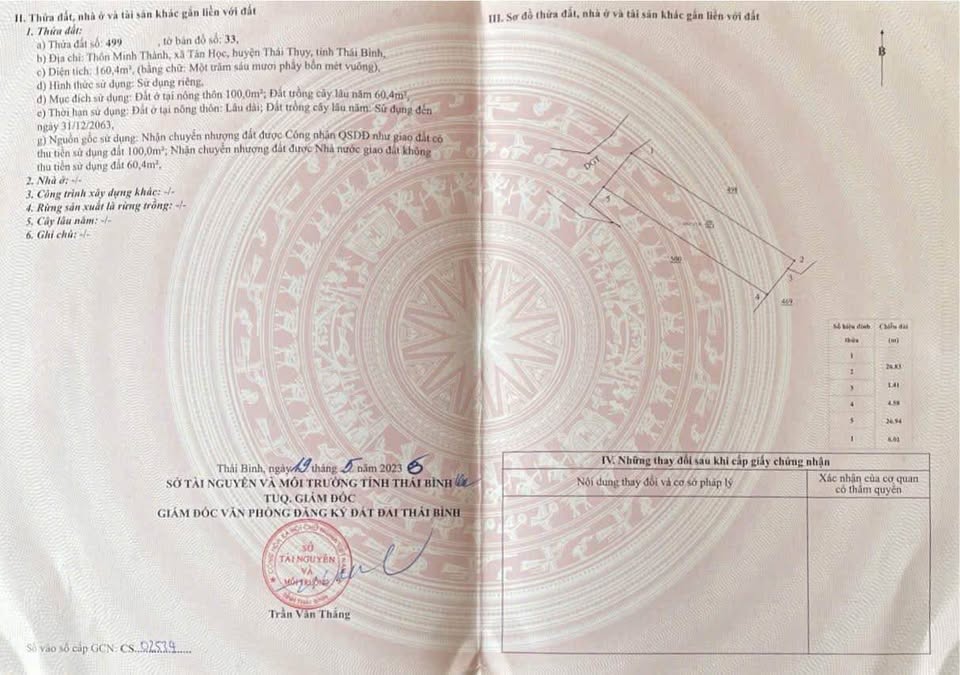 II. Thửa đất, nhà ở và tài sản khác gắn liền với đất
1. Thửa đất:
a) Thửa đất số: 499 , tờ bản đồ số: 33,
b) Địa chỉ: Thôn Minh Thành, xã Tân Học, huyện Thái Thụy, tỉnh Thái Bình,
c) Diện tích: 160,4m², (bằng chữ: Một trăm sáu mươi phẩy bốn mét vuông),
d) Hình thức sử dụng: Sử dụng riêng,
đ) Mục đích sử dụng: Đất ở tại nông thôn 100,0m²; Đất trồng cây lâu năm 60,4m²,
e) Thời hạn sử dụng: Đất ở tại nông thôn: Lâu dài; Đất trồng cây lâu năm: Sử dụng đến
ngày 31/12/2063,
g) Nguồn gốc sử dụng: Nhận chuyển nhượng đất được Công nhận QSDĐ như giao đất có
thu tiền sử dụng đất 100,0m²; Nhận chuyển nhượng đất được Nhà nước giao đất không
thu tiền sử dụng đất 60,4m²,
2. Nhà ở: -/-
3. Công trình xây dựng khác: -/-
4. Rừng sản xuất là rừng trồng: -/-
5. Cây lâu năm: -/-
6. Ghi chú: -/-
Thái Bình, ngày 19 tháng 5 năm 2023
SỞ TÀI NGUYÊN VÀ MÔI TRƯỜNG TỈNH THÁI BÌNH
TUQ. GIÁM ĐỐC
GIÁM ĐỐC VĂN PHÒNG ĐĂNG KÝ ĐẤT ĐAI THÁI BÌNH
SỞ
TÀI NGUYÊN
VÀ
MÔI TRƯỜNG
TỈNH THÁI BÌNH
Trần Văn Thắng
Số vào sổ cấp GCN: CS 02539
III. Sơ đồ thửa đất, nhà ở và tài sản khác gắn liền với đất
B
DGT
1
5
500
2
3
4
469
Số hiệu đỉnh thửa Chiều dài (m)
1
26.83
2
1.41
3
4.58
4
26.94
5
6.01
1
IV. Những thay đổi sau khi cấp giấy chứng nhận
Nội dung thay đổi và cơ sở pháp lý
Xác nhận của cơ quan
có thẩm quyền